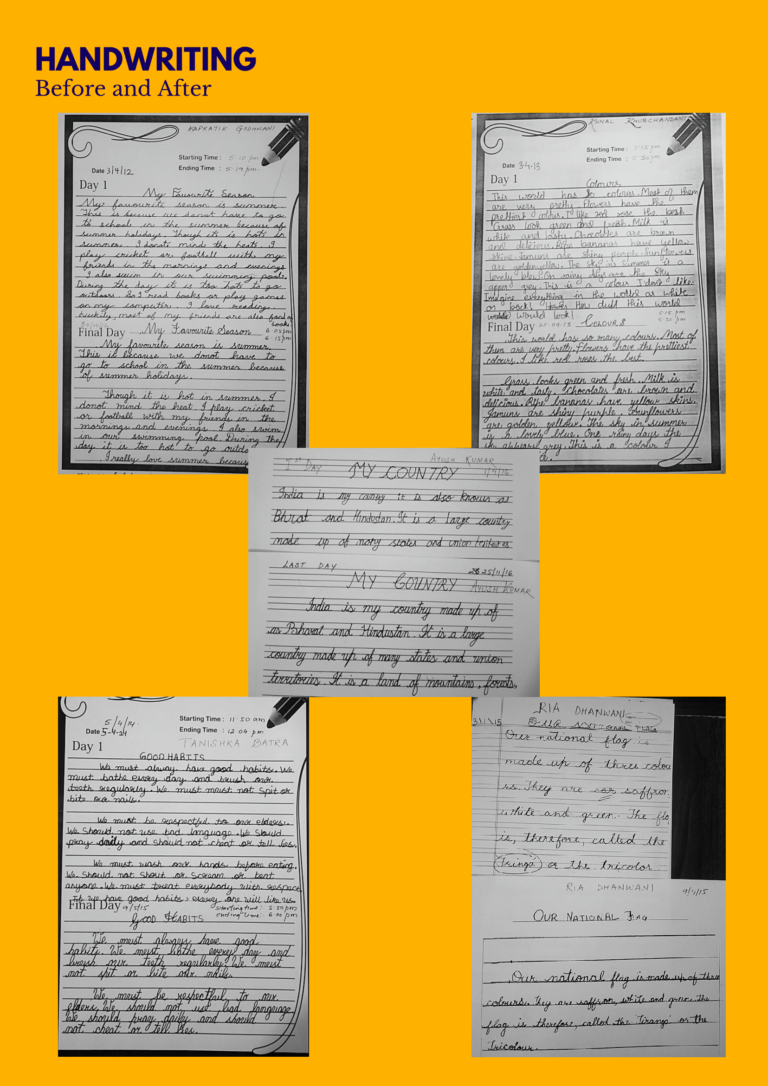 HANDWRITING
Before and After
KAPRATIK GODHWANI
Starting Time : 5:10 pm
Date 3/4/12
Ending Time : 5:19 pm
Day 1
My Favourite Season
My favourite season is summer.
This is because we donot have to go
to school in the summer because of
summer holidays. Though it is hot in
summer. I donot mind the heat. I
play cricket or football with my
friends in the mornings and evenings
I also swim in our swimming pools.
During the day it is too hot to go
outdoors. So I read books or play games
on my computer. I love reading.
luckily, most of my friends are also fond of
books
Final Day My Favourite Season
My favourite season is summer.
This is because we donot have to
go to school in the summer because
of summer holidays.
Though it is hot in summer. I
donot mind the heat I play cricket
or football with my friends in the
mornings and evenings. I also swim
in our swimming pool. During the
day it is too hot to go outdo
I really love summer becaus
KHUBCHANDANI
Starting Time :
Date 3-4-13
Ending Time :
Day 1
Colours
This world has so colours. Most of them
are very pretty. Flowers have the
prettiest colour. I like red rose the best.
Grass look green and fresh. Milk is
white and tasty. Chocolates are brown
and delicious. Ripe bananas have yellow
skins. Jamuns are shiny people. Sunflowers
are golden yellow. The sky in summer is a
lovely blue. On rainy days are the sky
upper grey. This is a colour I don't like.
Imagine everything in the world as white
or back! How dull this world
would look!
5:15 pm
Final Day COLOURS
This world has so many colours. Most of
them are very pretty. Flowers have the prettiest
colours. I like red roses the best.
Grass looks green and fresh. Milk is
white and tasty. Chocolates are brown and
delicious. Ripe bananas have yellow skins.
Jamuns are shiny purple. Sunflowers
are golden yellow. The sky in summer
is a lovely blue. One rainy days the
appears grey. This is a colour I
1st DAY MY COUNTRY AYUSH KUMAR
India is my it is also knows as
Bhrat and Hindustan. It is a large country
made up of many states and union
LAST DAY 25/11/16
MY COUNTRY AYUSH KUMAR
India is my country made up of
as Bharat and Hindustan. It is a large
country made up of many states and union
territories. It is a land of mountains, forests,
5/4/14
Starting Time : 11 50 am
Date 5-4-14
Ending Time : 12 04 pm
Day 1 TANISHKA BATRA
GOOD HABITS
We must alway have good habits. We
must bathe every day and brush our
teeth regularly. We must not spit or
bite our nails.
We must be respectful to our elders.
We Should not use bad language. We Should
pray daily and Should not cheat or tell lies.
We must wash our hands before eating.
We Should not Shout or Scream or beat
anyone. We must treat everybody with respect
If we have good habits will like us.
Final Day 9/5/15 Starting time : 5:50 pm
ending time : 6:00 pm
Good HABITS
We must always have good
habits. We must bathe every day and
brush our teeth regularly. We must
not spit or bite our nails.
We must be respectful to our
elders. We should not use bad language
We should pray daily and should
not cheat or tell lies.
RIA DHANWANI
3/1/15
Our national flag is
made up of three colou
rs. They are saffron
white and green. The fla
is, therefore, called the
Tiranga or the tricolor
RIA DHANWANI 9/1/15
OUR NATIONAL FLAG
Our national flag is made up of three
colours. They are saffron, white and green. The
flag is therefore, called the Tiranga or the
Tricolour.